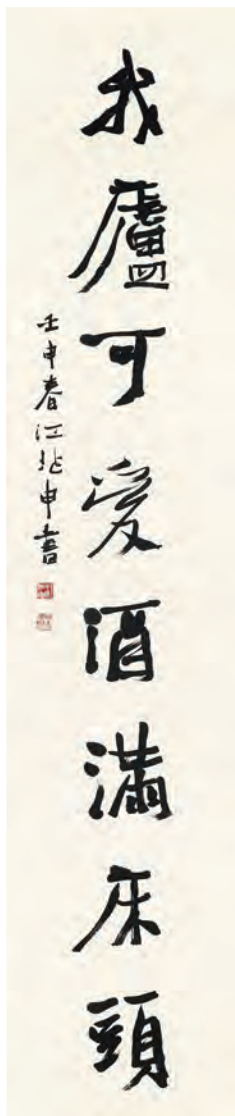 我廬可愛酒滿床頭
壬申春江兆申書